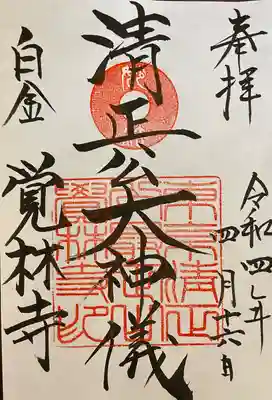 奉拝
令和四年
四月十六日
清正公大神儀
白金
覚林寺